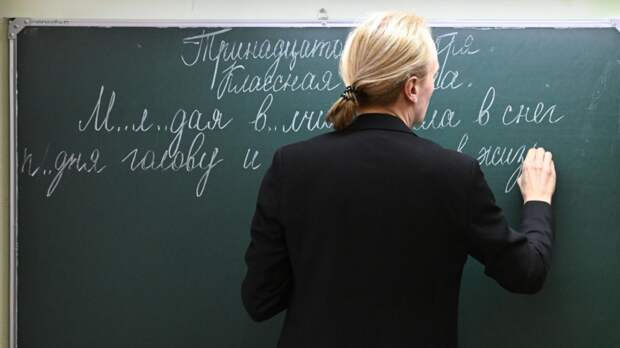 Тринадцато бря.
Классная а.
М..л..дая в..лчи ла в снег
п..дня голову и в жиз